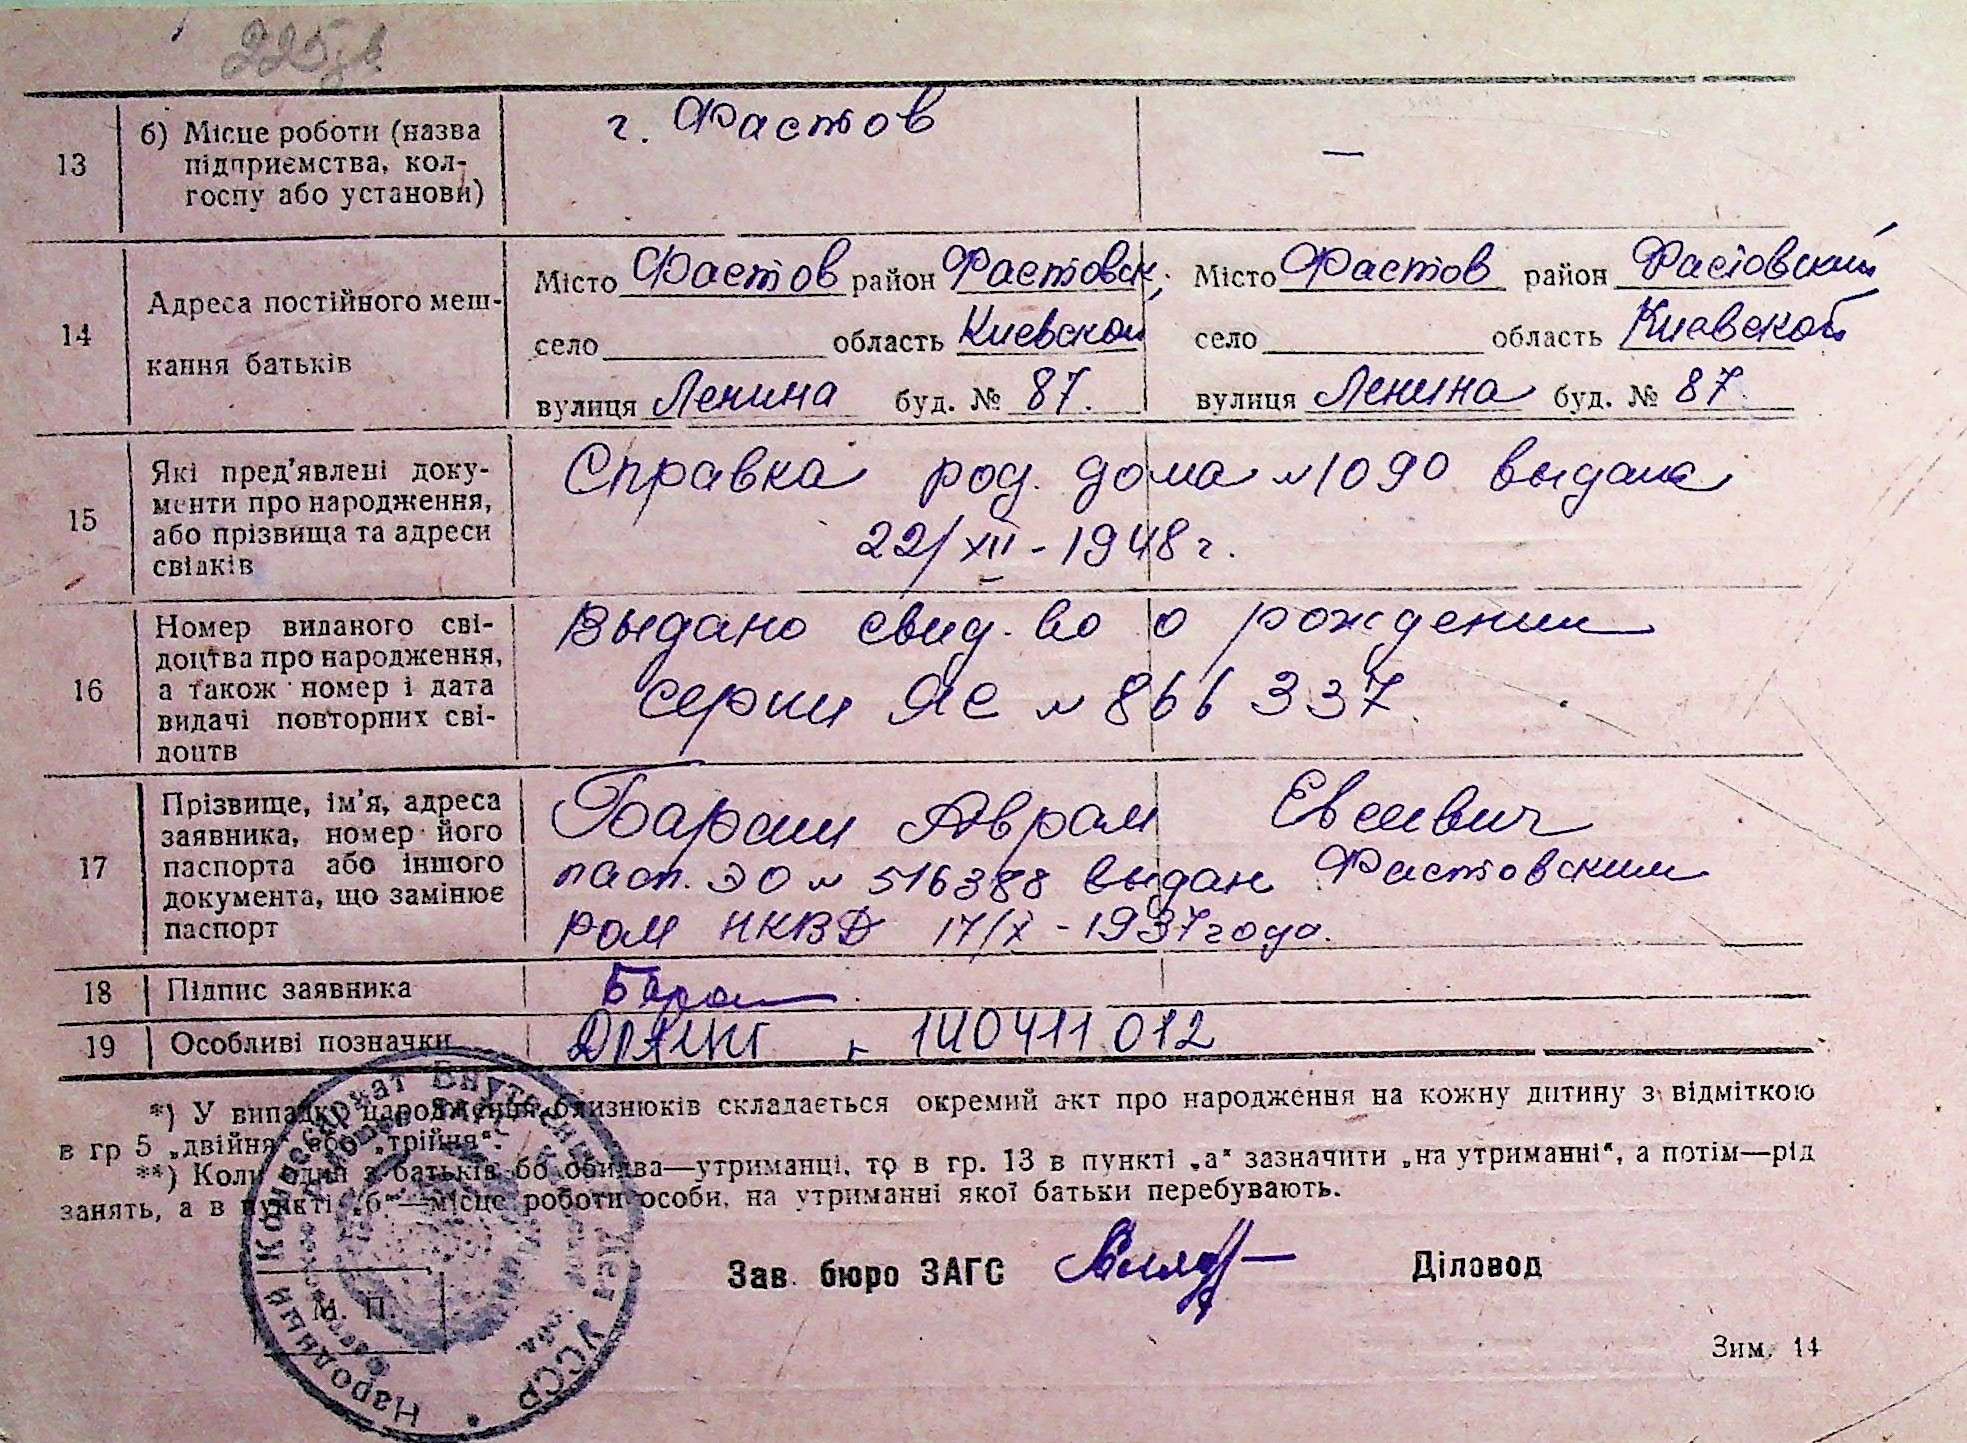 225 зв
13
б) Місце роботи (назва
підприємства, кол-
госпу або установи)
г. Фастов
—
14
Адреса постійного меш-
кання батьків
Місто Фастов район Фастовск.
село область Киевской
вулиця Ленина буд. № 87.
Місто Фастов район Фастовский
село область Киевской
вулиця Ленина буд. № 87.
15
Які пред'явлені доку-
менти про народження,
або прізвища та адреси
свідків
Справка род. дома №1090 выдана
22/XII - 1948 г.
16
Номер виданого сві-
доцтва про народження,
а також номер і дата
видачі повторних сві-
доцтв
Выдано свид-во о рождении
серии ЯЕ № 866337.
17
Прізвище, ім'я, адреса
заявника, номер його
паспорта або іншого
документа, що замінює
паспорт
Бараш Аврам Евсеевич
пасп. ЭО № 516388 выдан Фастовским
РОМ НКВД 17/X - 1937 года.
18
Підпис заявника
Бараш
19
Особливі позначки
ДРАЦСГ - 140411 012
*) У випадку народження близнюків складається окремий акт про народження на кожну дитину з відміткою
в гр 5 „двійня“ або „трійня“.
**) Коли один з батьків бо обидва—утриманці, то в гр. 13 в пункті „а“ зазначити „на утриманні“, а потім—рід
занять, а в пункті „б“—місце роботи особи, на утриманні якої батьки перебувають.
Зав. бюро ЗАГС
Діловод
М. П.
Народный Комиссариат Внутренних Дел УССР
Зим. 14